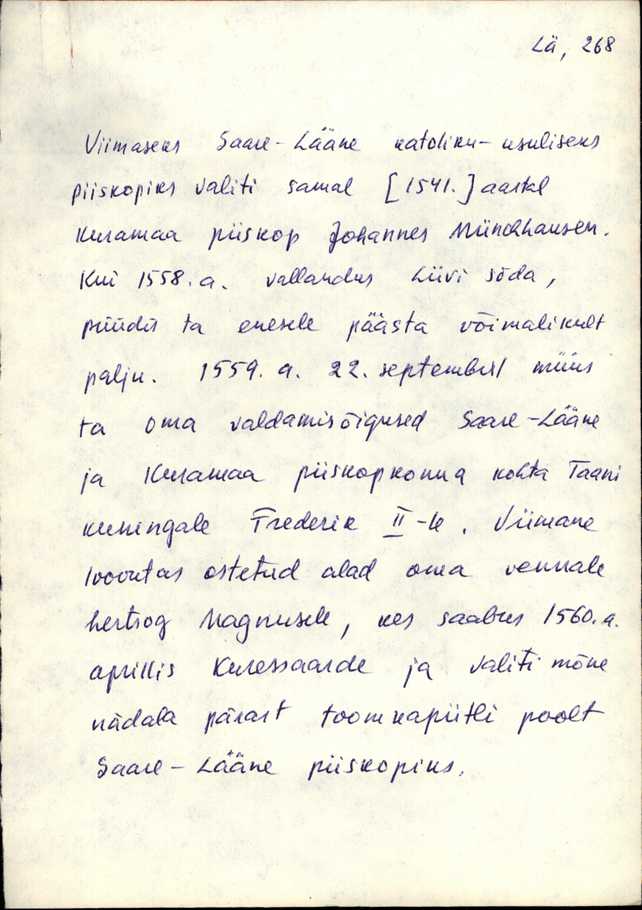 Lä, 268
Viimaseks Saare-Lääne katoliku-usuliseks
piiskopiks valiti samal [1541.] aastal
Kuramaa piiskop Johannes Münchhausen.
Kui 1558. a. vallandus Liivi sõda,
püüdis ta enesele päästa võimalikult
palju. 1559. a. 22. septembril müüs
ta oma valdamisõigused Saare-Lääne
ja Kuramaa piiskopkonna kohta Taani
kuningale Frederik II-le. Viimane
loovutas ostetud alad oma vennale
hertsog Magnusele, kes saabus 1560. a.
aprillis Kuressaarde ja valiti mõne
nädala pärast toomkapiitli poolt
Saare-Lääne piiskopiks.